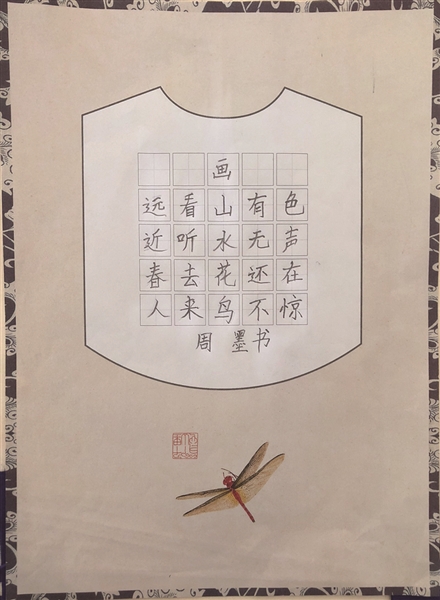 画
远看山有色
近听水无声
春去花还在
人来鸟不惊
周墨书